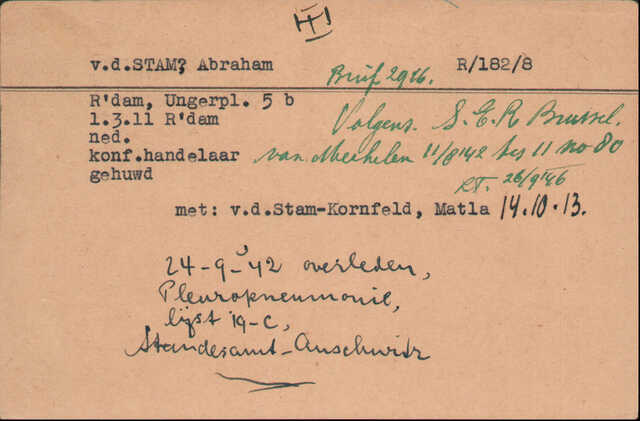 v.d.STAM, Abraham
Brief 2926.
R/182/8
R'dam, Ungerpl. 5 b
1.3.11 R'dam
ned.
konf.handelaar
gehuwd
Volgens S.E.R Brussel.
van Mechelen 11/8'42 tr 11 no 80
26/9'46
met: v.d.Stam-Kornfeld, Matla 14.10.13.
24-9-'42 overleden,
Pleuropneumonie,
lijst 19-C,
Standesamt-Auschwitz